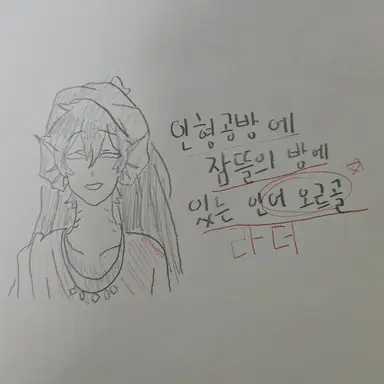 인형공방에
잠뜰의 방에
있는 인어 오르골
라더